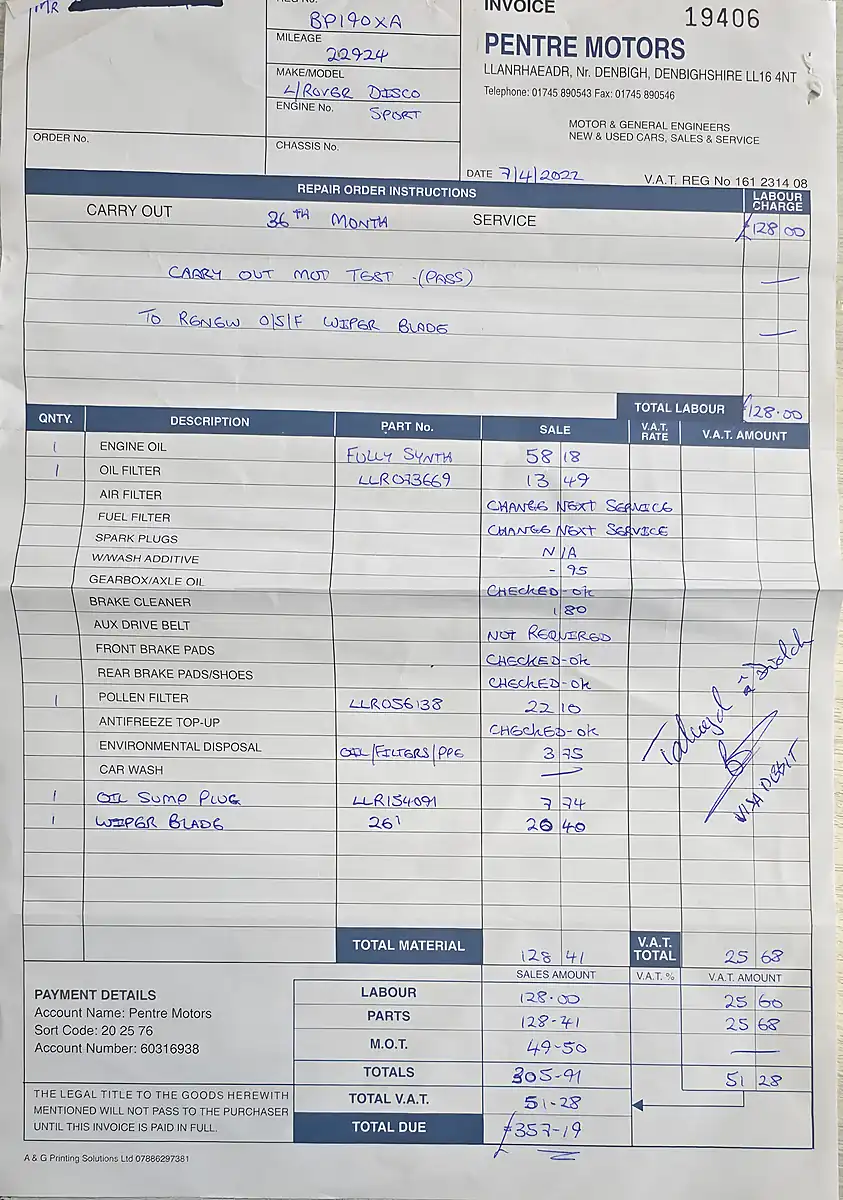 MR
INVOICE
19406
BP190XA
MILEAGE
22924
PENTRE MOTORS
LLANRHAEADR, Nr. DENBIGH, DENBIGHSHIRE LL16 4NT
MAKE/MODEL
L/ROVER DISCO
Telephone: 01745 890543 Fax: 01745 890546
ENGINE No.
SPORT
MOTOR & GENERAL ENGINEERS
NEW & USED CARS, SALES & SERVICE
ORDER No.
CHASSIS No.
DATE 7/4/2022
V.A.T. REG No 161 2314 08
REPAIR ORDER INSTRUCTIONS
LABOUR CHARGE
CARRY OUT 36TH MONTH SERVICE £128 00
CARRY OUT MOT TEST -(PASS) —
TO RENEW O/S/F WIPER BLADE —
TOTAL LABOUR £128.00
QNTY. DESCRIPTION PART No. SALE V.A.T. RATE V.A.T. AMOUNT
1 ENGINE OIL FULLY SYNTH 58 18
1 OIL FILTER LLR073669 13 49
AIR FILTER CHANGE NEXT SERVICE
FUEL FILTER CHANGE NEXT SERVICE
SPARK PLUGS N/A
W/WASH ADDITIVE - 95
GEARBOX/AXLE OIL CHECKED-OK
BRAKE CLEANER 1 80
AUX DRIVE BELT NOT REQUIRED
FRONT BRAKE PADS CHECKED-OK
REAR BRAKE PADS/SHOES CHECKED-OK
1 POLLEN FILTER LLR056138 22 10
ANTIFREEZE TOP-UP CHECKED-OK
ENVIRONMENTAL DISPOSAL OIL/FILTERS/PPE 3 75
CAR WASH —
1 OIL SUMP PLUG LLR154091 7 74
1 WIPER BLADE 26' 20 40
Talwyd â Diolch
VISA DEBIT
TOTAL MATERIAL 128 41 V.A.T. TOTAL 25 68
SALES AMOUNT V.A.T. % V.A.T. AMOUNT
LABOUR 128.00 25 60
PARTS 128-41 25 68
M.O.T. 49-50 —
TOTALS 305-91 51 28
TOTAL V.A.T. 51-28
TOTAL DUE £357-19
PAYMENT DETAILS
Account Name: Pentre Motors
Sort Code: 20 25 76
Account Number: 60316938
THE LEGAL TITLE TO THE GOODS HEREWITH
MENTIONED WILL NOT PASS TO THE PURCHASER
UNTIL THIS INVOICE IS PAID IN FULL.
A & G Printing Solutions Ltd 07886297381